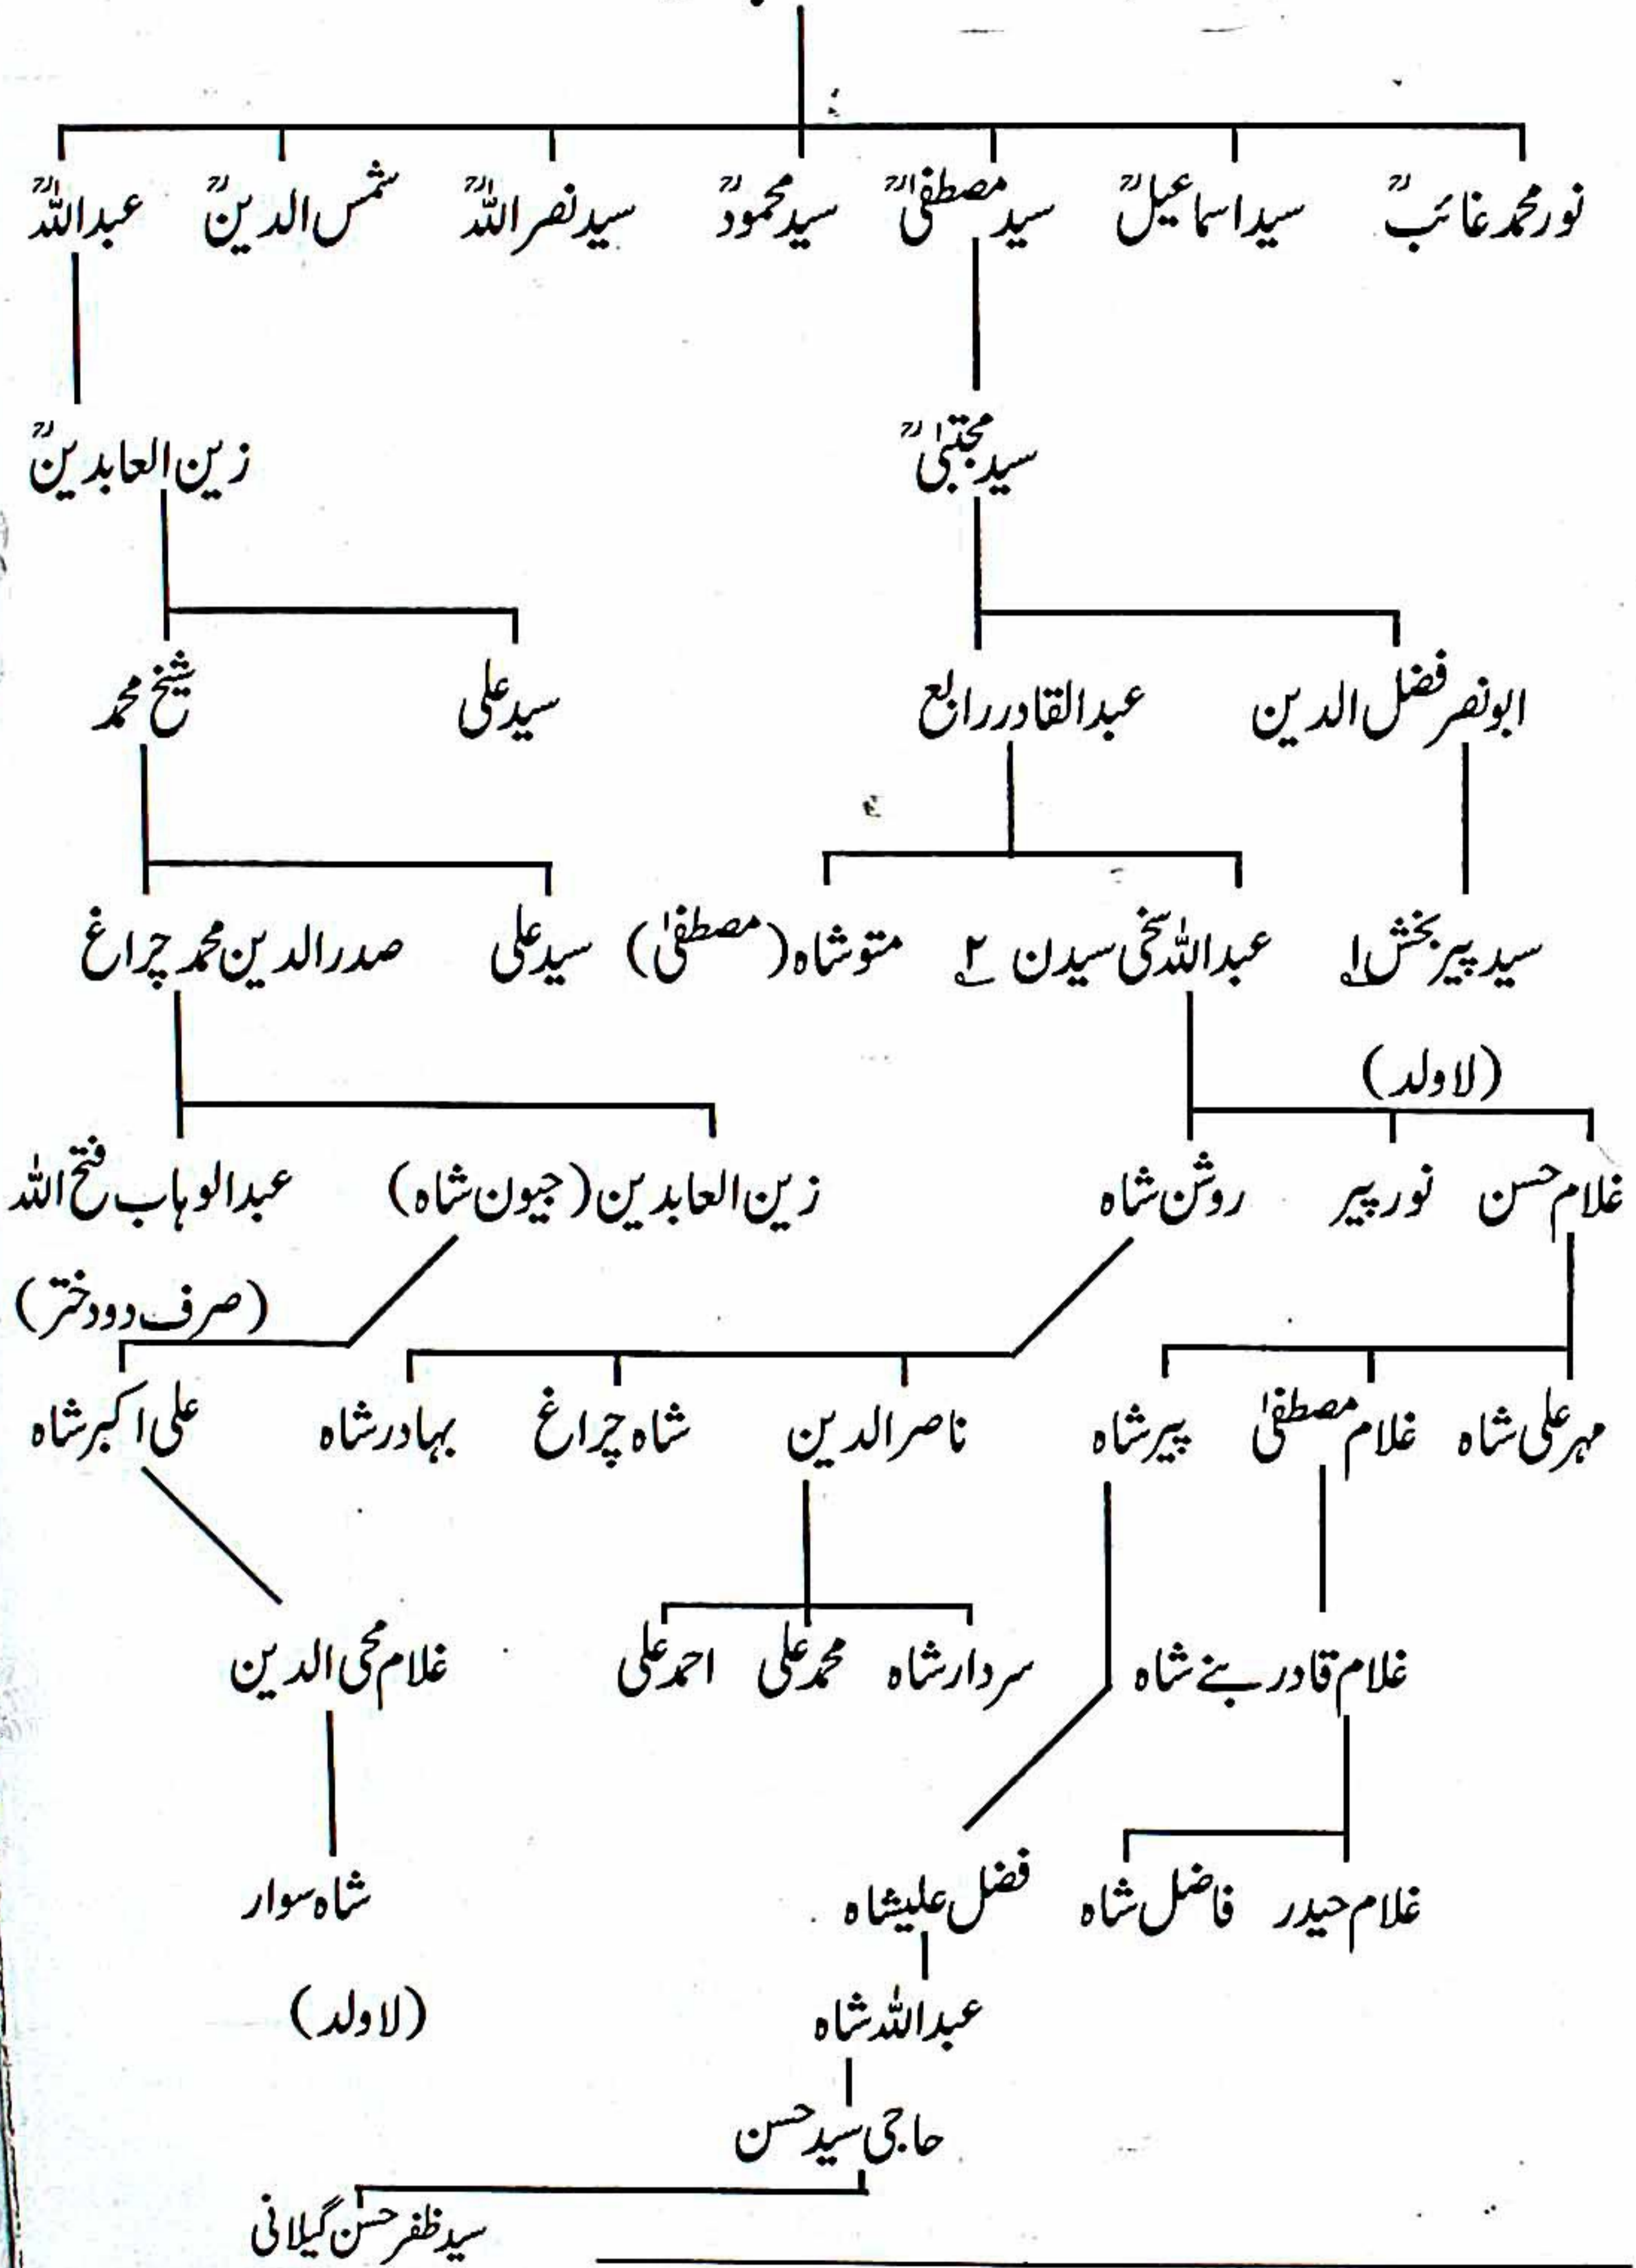 نور محمد غائبؒ سید اسماعیلؒ سید مصطفیٰؒ سید محمودؒ سید نصر اللہؒ شمس الدینؒ عبداللہؒ
سید مجتبیٰؒ زین العابدینؒ
ابونصر فضل الدین عبدالقادر رابع سید علی شیخ محمد
سید پیر بخش ۱؎ عبداللہ سخی سیدن ۲؎ متو شاہ (مصطفیٰ) سید علی صدر الدین محمد چراغ
(لاولد)
غلام حسن نور پیر روشن شاہ زین العابدین (جیون شاہ) عبدالوہاب فتح اللہ
(صرف دو دختر)
مہر علی شاہ غلام مصطفیٰ پیر شاہ ناصر الدین شاہ چراغ بہادر شاہ علی اکبر شاہ
غلام قادر بنے شاہ سردار شاہ محمد علی احمد علی غلام محی الدین
غلام حیدر فاضل شاہ فضل علیشاہ شاہ سوار
عبداللہ شاہ (لاولد)
حاجی سید حسن
سید ظفر حسن گیلانی